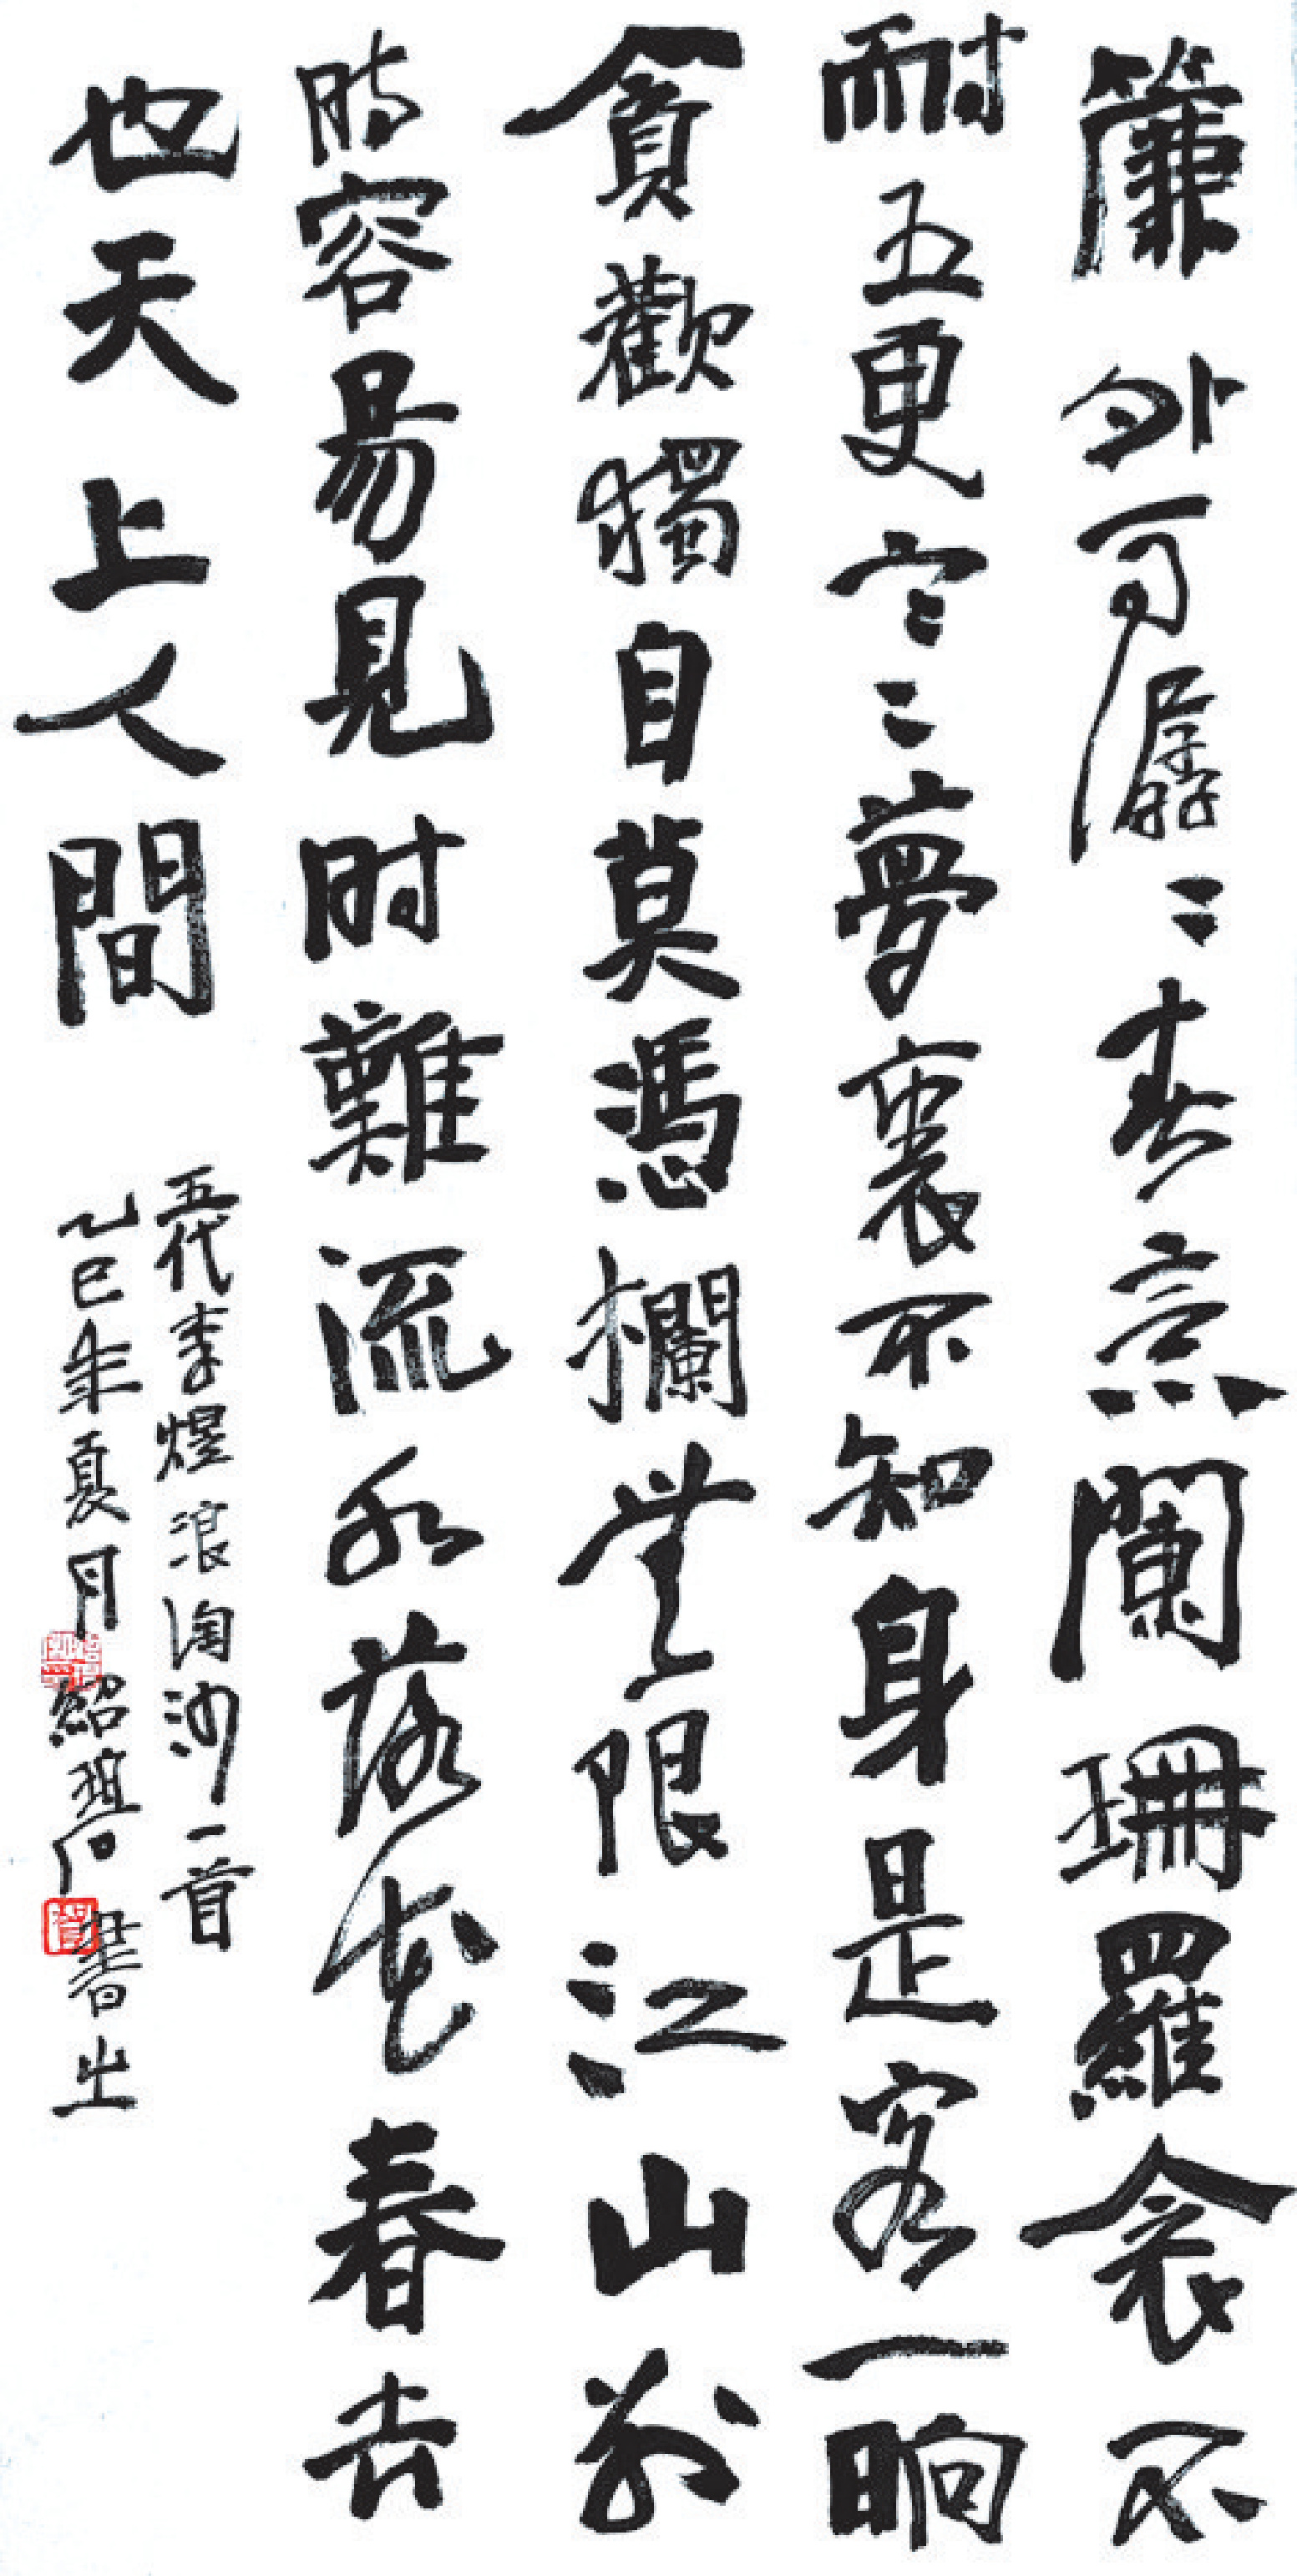 簾外雨潺〻春意闌珊羅衾不
耐五更寒夢裏不知身是客一晌
貪歡獨自莫憑欄無限江山別
時容易見时難流水落花春去
也天上人間
五代李煜浪淘沙一首
乙巳年夏月紹石書